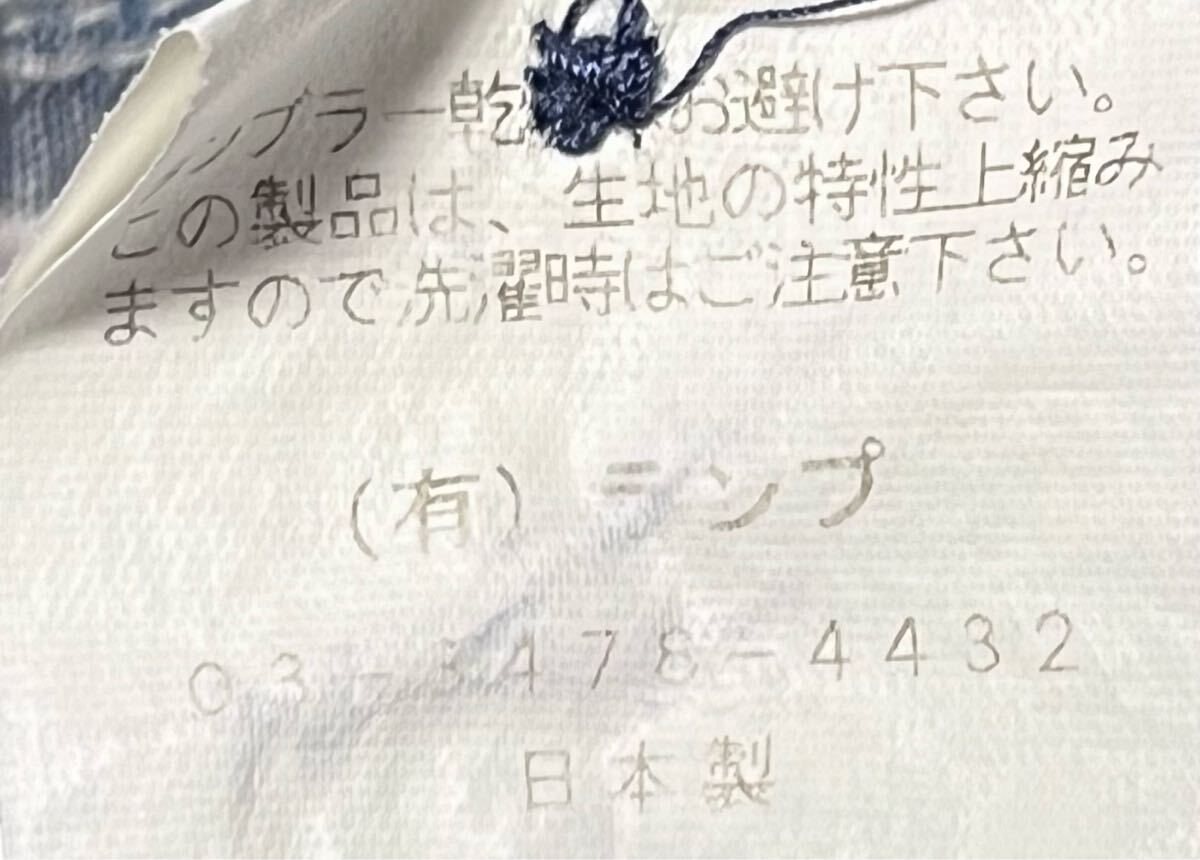 ンブラー乾 お避け下さい。
この製品は、生地の特性上縮み
ますので洗濯時はご注意下さい。
(有) ランプ
03-3478-4432
日本製